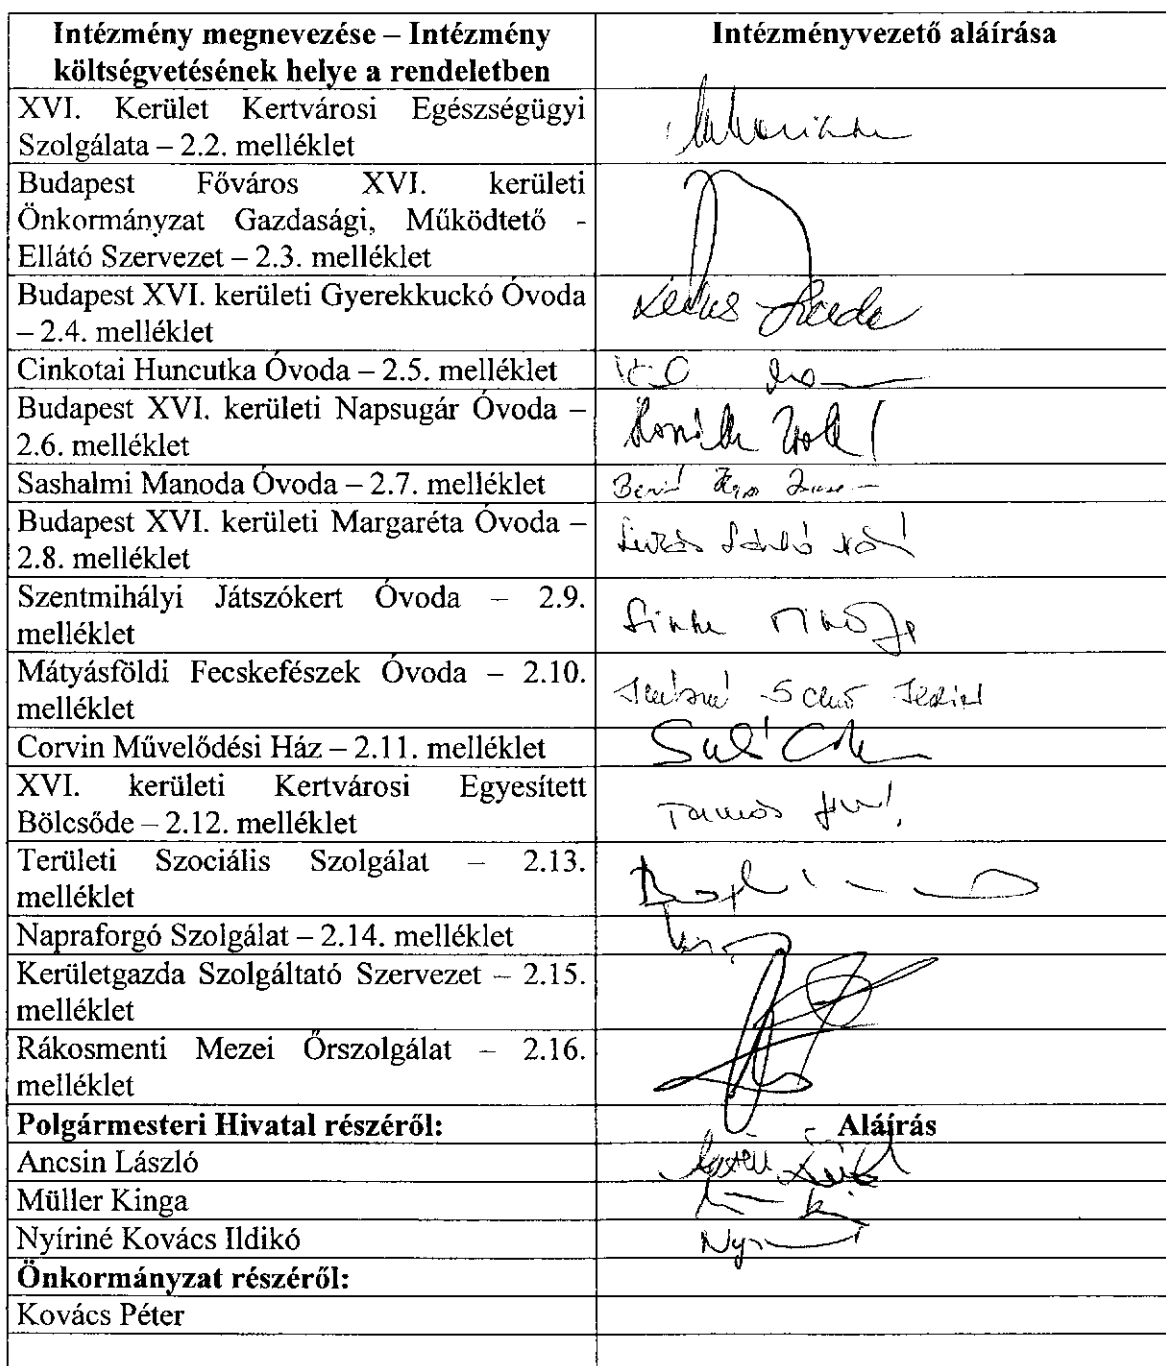 Intézmény megnevezése – Intézmény
költségvetésének helye a rendeletben
Intézményvezető aláírása
XVI. Kerület Kertvárosi Egészségügyi
Szolgálata – 2.2. melléklet
Budapest Főváros XVI. kerületi
Önkormányzat Gazdasági, Működtető -
Ellátó Szervezet – 2.3. melléklet
Budapest XVI. kerületi Gyerekkuckó Óvoda
– 2.4. melléklet
Cinkotai Huncutka Óvoda – 2.5. melléklet
Budapest XVI. kerületi Napsugár Óvoda –
2.6. melléklet
Sashalmi Manoda Óvoda – 2.7. melléklet
Budapest XVI. kerületi Margaréta Óvoda –
2.8. melléklet
Szentmihályi Játszókert Óvoda – 2.9.
melléklet
Mátyásföldi Fecskefészek Óvoda – 2.10.
melléklet
Corvin Művelődési Ház – 2.11. melléklet
XVI. kerületi Kertvárosi Egyesített
Bölcsőde – 2.12. melléklet
Tamás
Területi Szociális Szolgálat – 2.13.
melléklet
Napraforgó Szolgálat – 2.14. melléklet
Kerületgazda Szolgáltató Szervezet – 2.15.
melléklet
Rákosmenti Mezei Őrszolgálat – 2.16.
melléklet
Polgármesteri Hivatal részéről:
Aláírás
Ancsin László
Müller Kinga
Nyíriné Kovács Ildikó
Önkormányzat részéről:
Kovács Péter